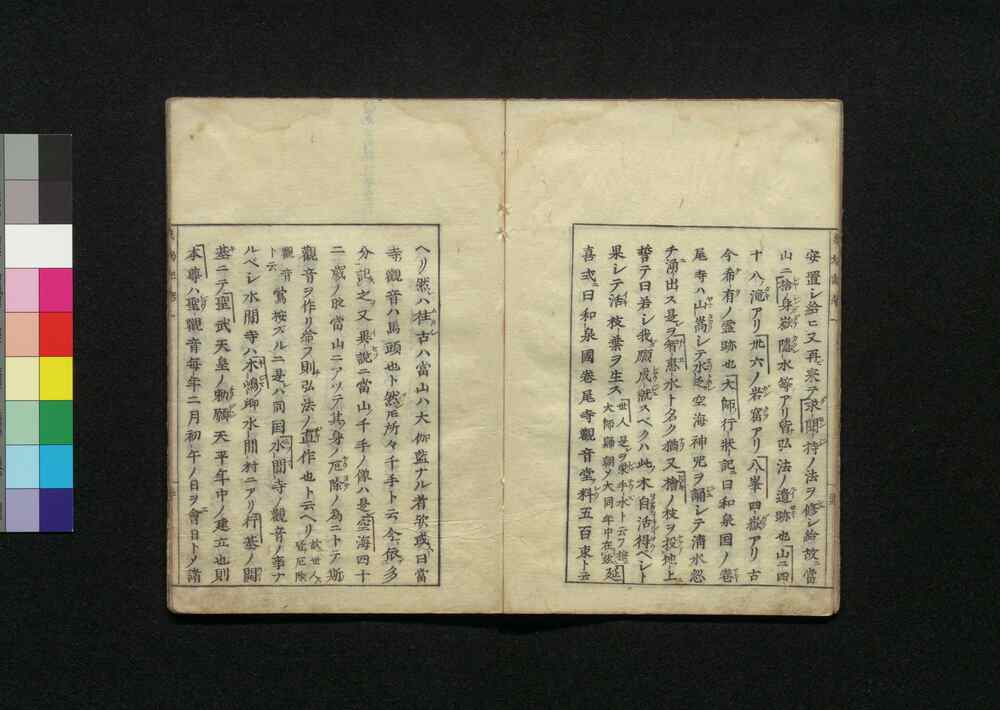 安置シ給ヒ又再ヒ来テ求聞持ノ法ヲ修シ給故ニ當
山ニ捨身嶽隠水等アリ皆弘法ノ遺跡也山ニ四
十八滝アリ卅六ノ岩窟アリ八峯四嶽アリ古
今希有ノ霊跡也大師行状記曰和泉国ノ巻
尾寺ハ山嵩シテ水乏空海神咒ヲ誦シテ清水忽
チ湧出ス是ヲ智恵水ト名ク猶又檜ノ枝ヲ投地上
誓テ曰若シ我願成就スベクハ此木自活得ヘシト
果シテ活枝葉ヲ生ス世人是ヲ柴手水ト云フ
大師歸朝メ大同年中在故延
喜式曰和泉國巻尾寺觀音堂料五百束ト云
ヘリ然ハ往古ハ當山ハ大伽監ナル者欤或曰當
寺觀音ハ馬頭也ト然𪜈所々千手ト云今依多
分記之又異説ニ當山千手ノ像ハ是空海四十
二歳ノ時當山ニアツテ其身ノ厄除ノ為ニトテ斯
觀音ヲ作リ給フ則弘法ノ直作也ト云ヘリ故世人
厄除
觀音
ト云當按ズルニ是ハ同国水間寺ノ觀音ノ事ナ
ルベシ水間寺ハ木嶋郷水間村ニアリ行基ノ開
基ニテ聖武天皇ノ勅願天平年中ノ建立也則
本尊ハ聖觀音毎年二月初午ノ日ヲ會日トメ諸